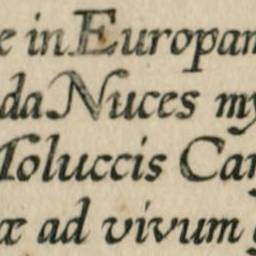 e in Europam
da Nuces my
Moluccis Car
æ ad vivum